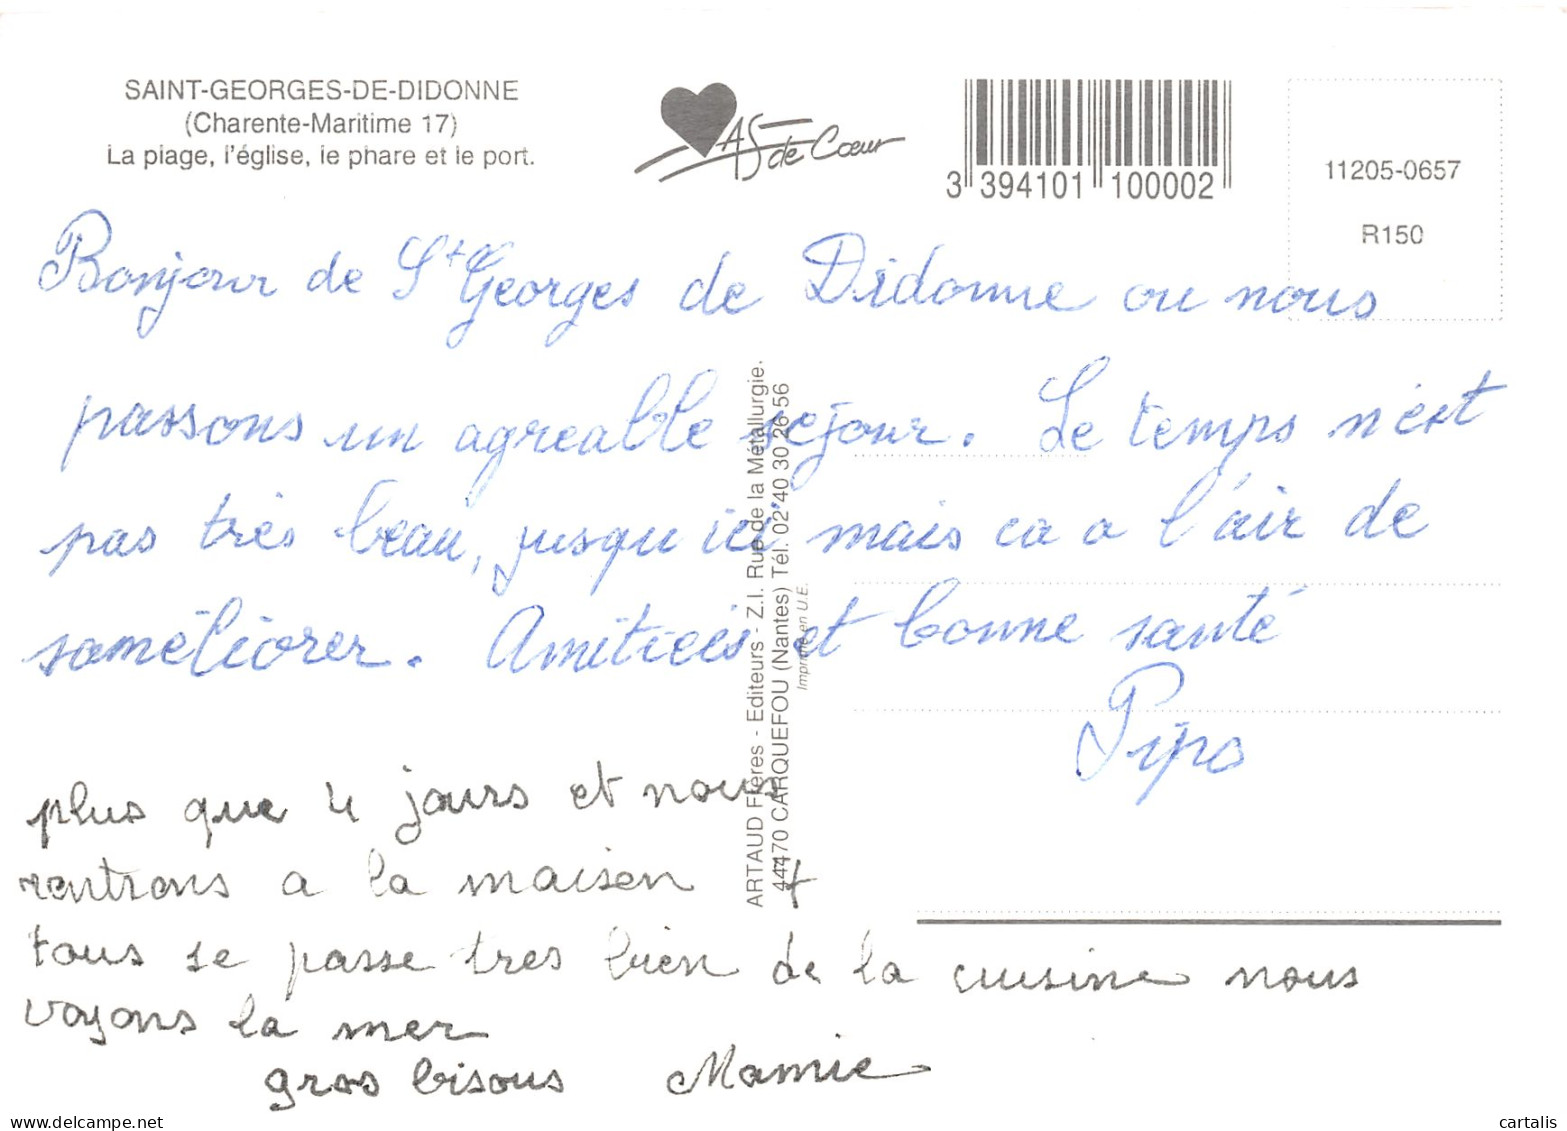 SAINT-GEORGES-DE-DIDONNE
(Charente-Maritime 17)
La plage, l'église, le phare et le port.
AS de Cœur
3 394101 100002
11205-0657
R150
Bonjour de St Georges de Didonne ou nous
passons un agreable sejour. Le temps n'est
pas très beau, jusqu ici mais ca a l'air de
saméliorer. Amitiées et bonne santé
Pipo
ARTAUD Frères - Editeurs - Z.I. Rue de la Métallurgie.
44470 CARQUEFOU (Nantes) Tél. 02 40 30 26 56
Imprimé en U.E.
plus que 4 jours et nous
rentrons a la maison
tous se passe tres bien de la cuisine nous
voyons la mer
gros bisous Mamie
www.delcampe.net
cartalis